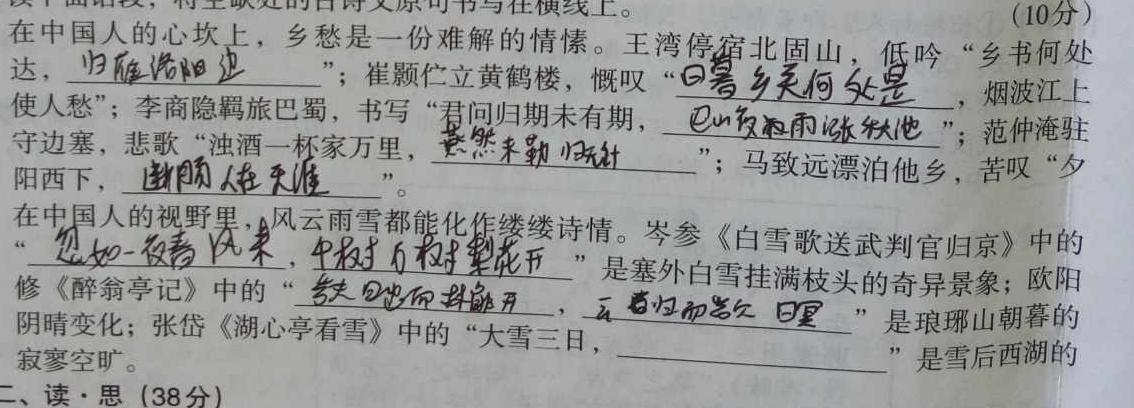 读下面语段，将空缺处的古诗文原句书写在横线上。
(10分)
在中国人的心坎上，乡愁是一份难解的情愫。王湾停宿北固山，低吟“乡书何处
达，归雁洛阳边”；崔颢伫立黄鹤楼，慨叹“日暮乡关何处是，烟波江上
使人愁”；李商隐羁旅巴蜀，书写“君问归期未有期，巴山夜雨涨秋池”；范仲淹驻
守边塞，悲歌“浊酒一杯家万里，燕然未勒归无计”；马致远漂泊他乡，苦叹“夕
阳西下，断肠人在天涯”。
在中国人的视野里，风云雨雪都能化作缕缕诗情。岑参《白雪歌送武判官归京》中的
“忽如一夜春风来，千树万树梨花开”是塞外白雪挂满枝头的奇异景象；欧阳
修《醉翁亭记》中的“若夫日出而林霏开，云 归而岩穴暝”是琅琊山朝暮的
阴晴变化；张岱《湖心亭看雪》中的“大雪三日，”是雪后西湖的
寂寥空旷。
二、读·思(38分)